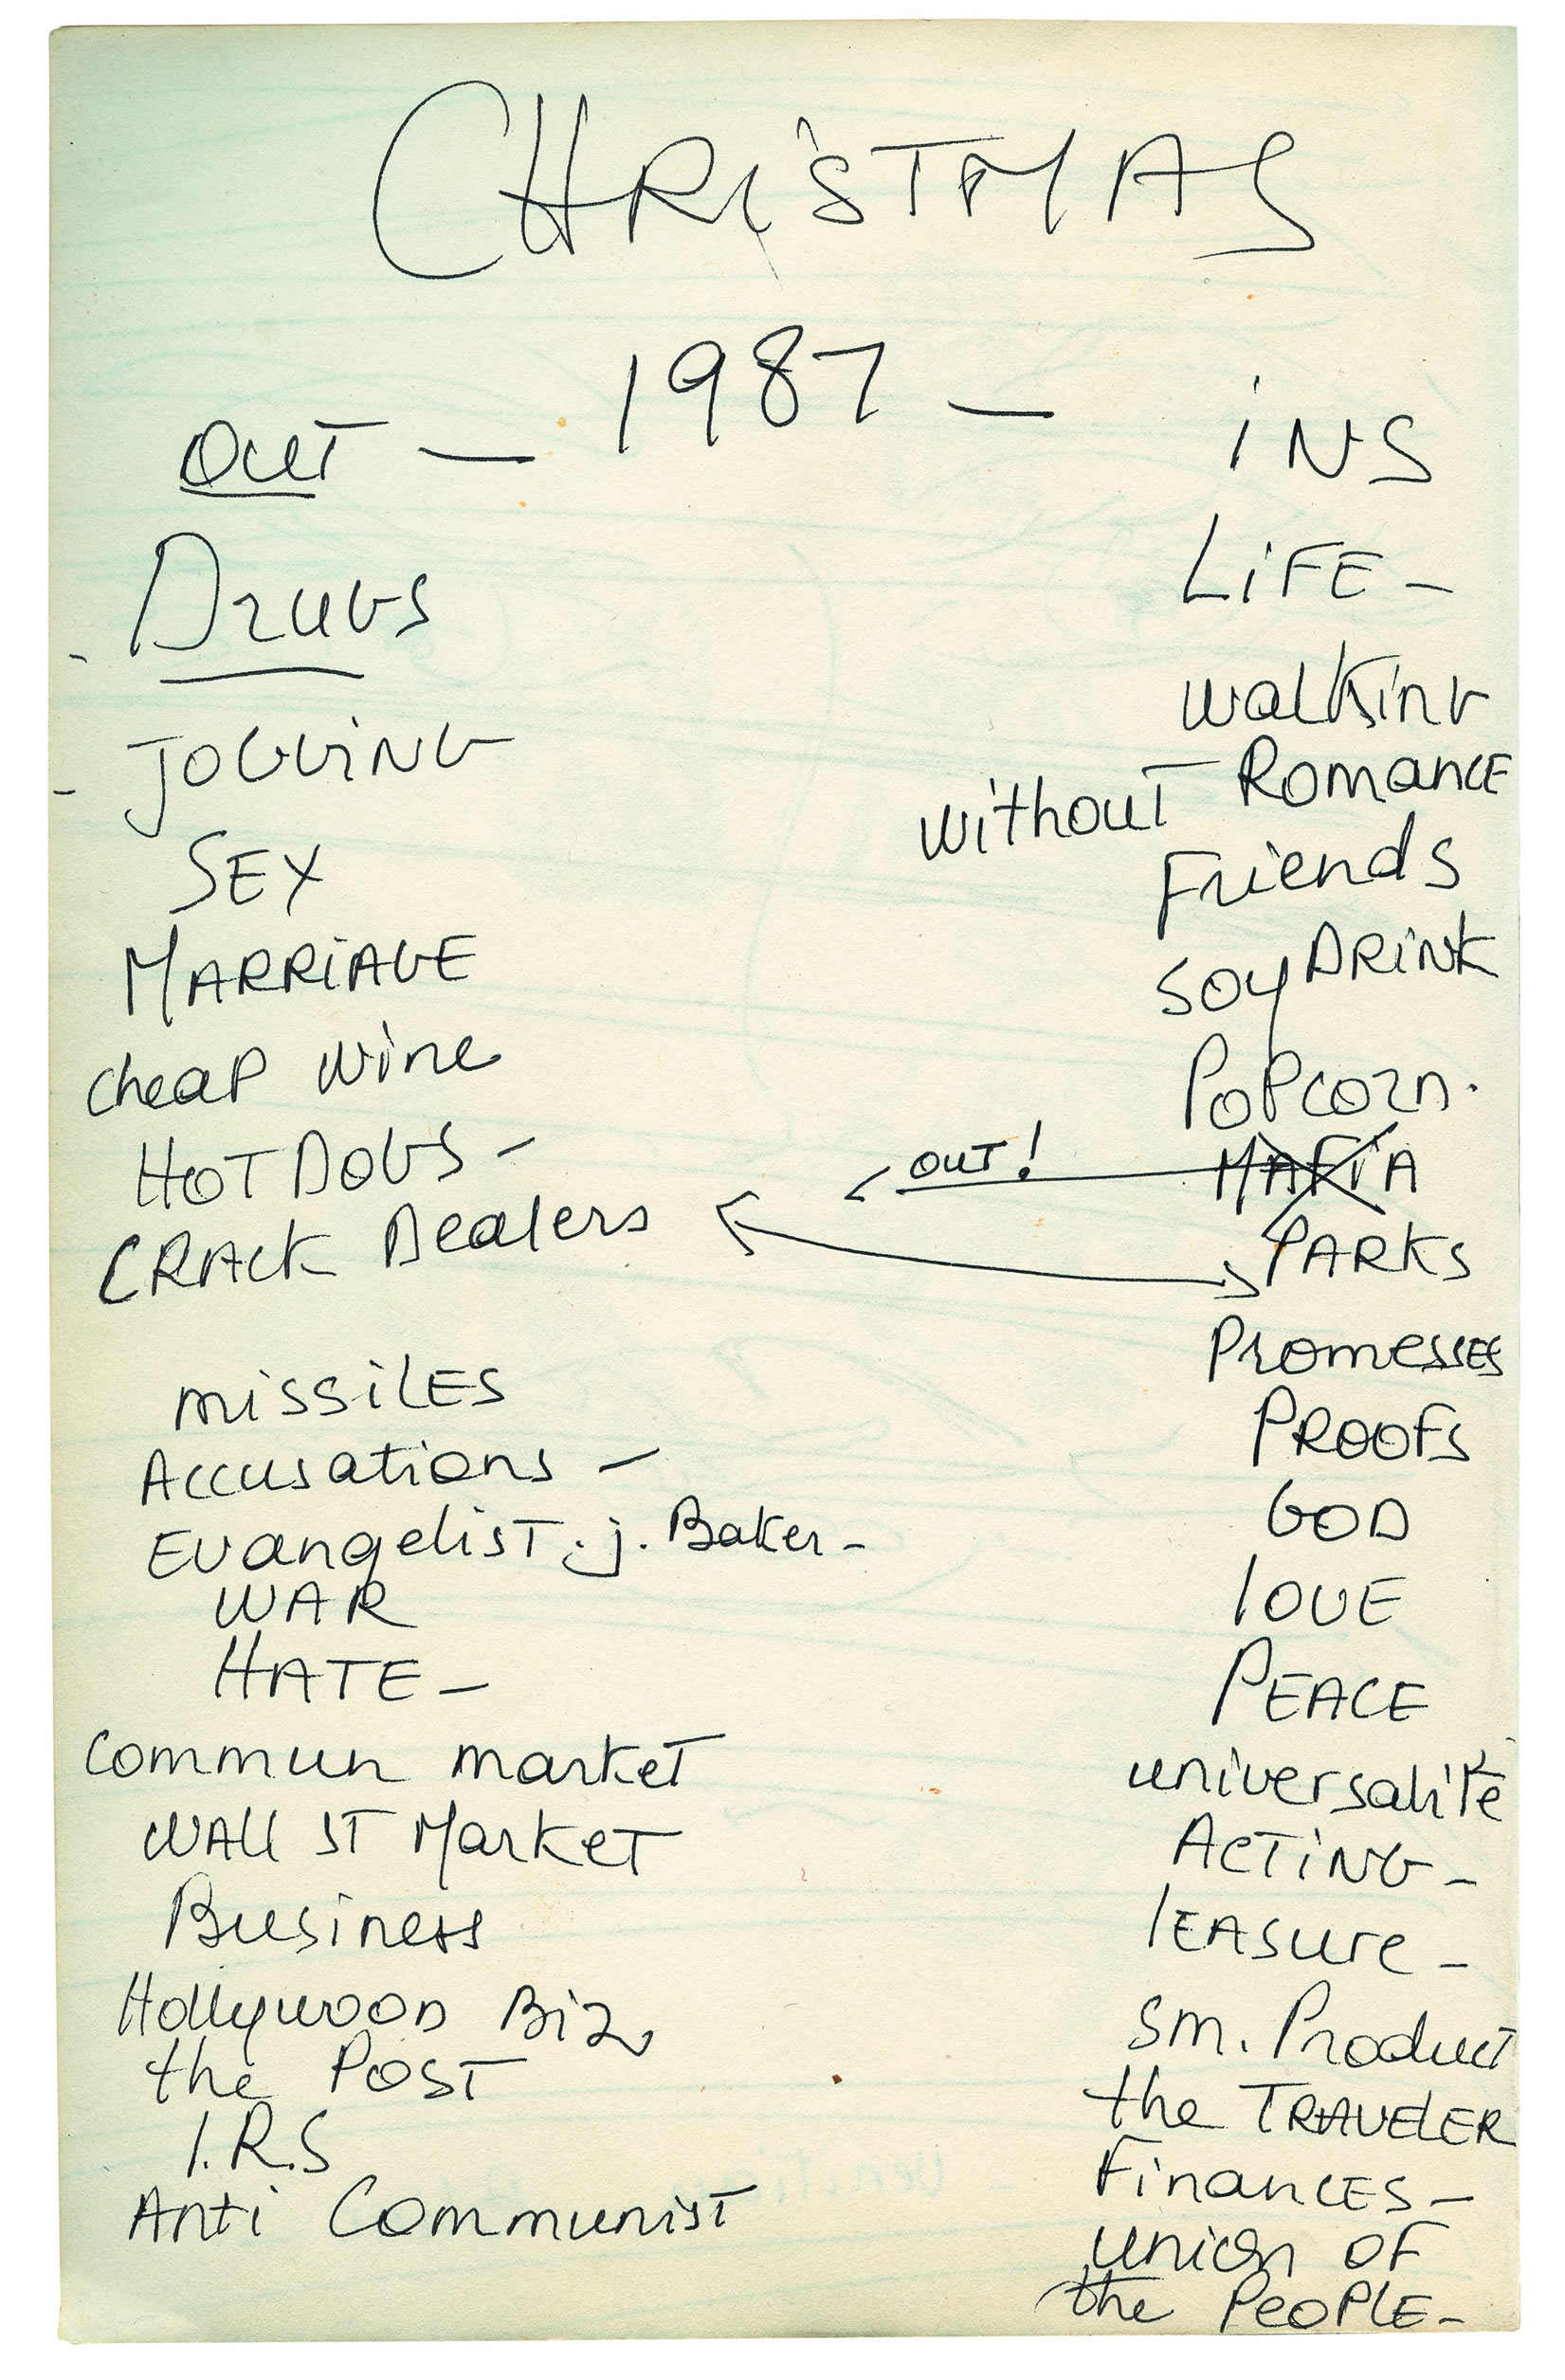 CHRiSTMAS
OUT — 1987 — iNS
DRUGS
- JOGGiNG
SEX
MARRiAGE
cheap wine
HOT DOGS -
CRACK Dealers
missilES
Accusations -
Evangelist. j. Baker -
WAR
HATE -
commun market
WAll ST Market
Business
Hollywood Biz
the POST
I.R.S
Anti Communist
LiFE -
walking
without Romance
Friends
soy DRiNK
PoPcorn.
OUT! MAFiA
PARKS
PromessES
PROOFs
GOD
lOVE
PEACE
universalité
ACTiNG -
lEAsure -
sm. Product
the TRAVElER
FinancES -
union OF
the PeoPlE -